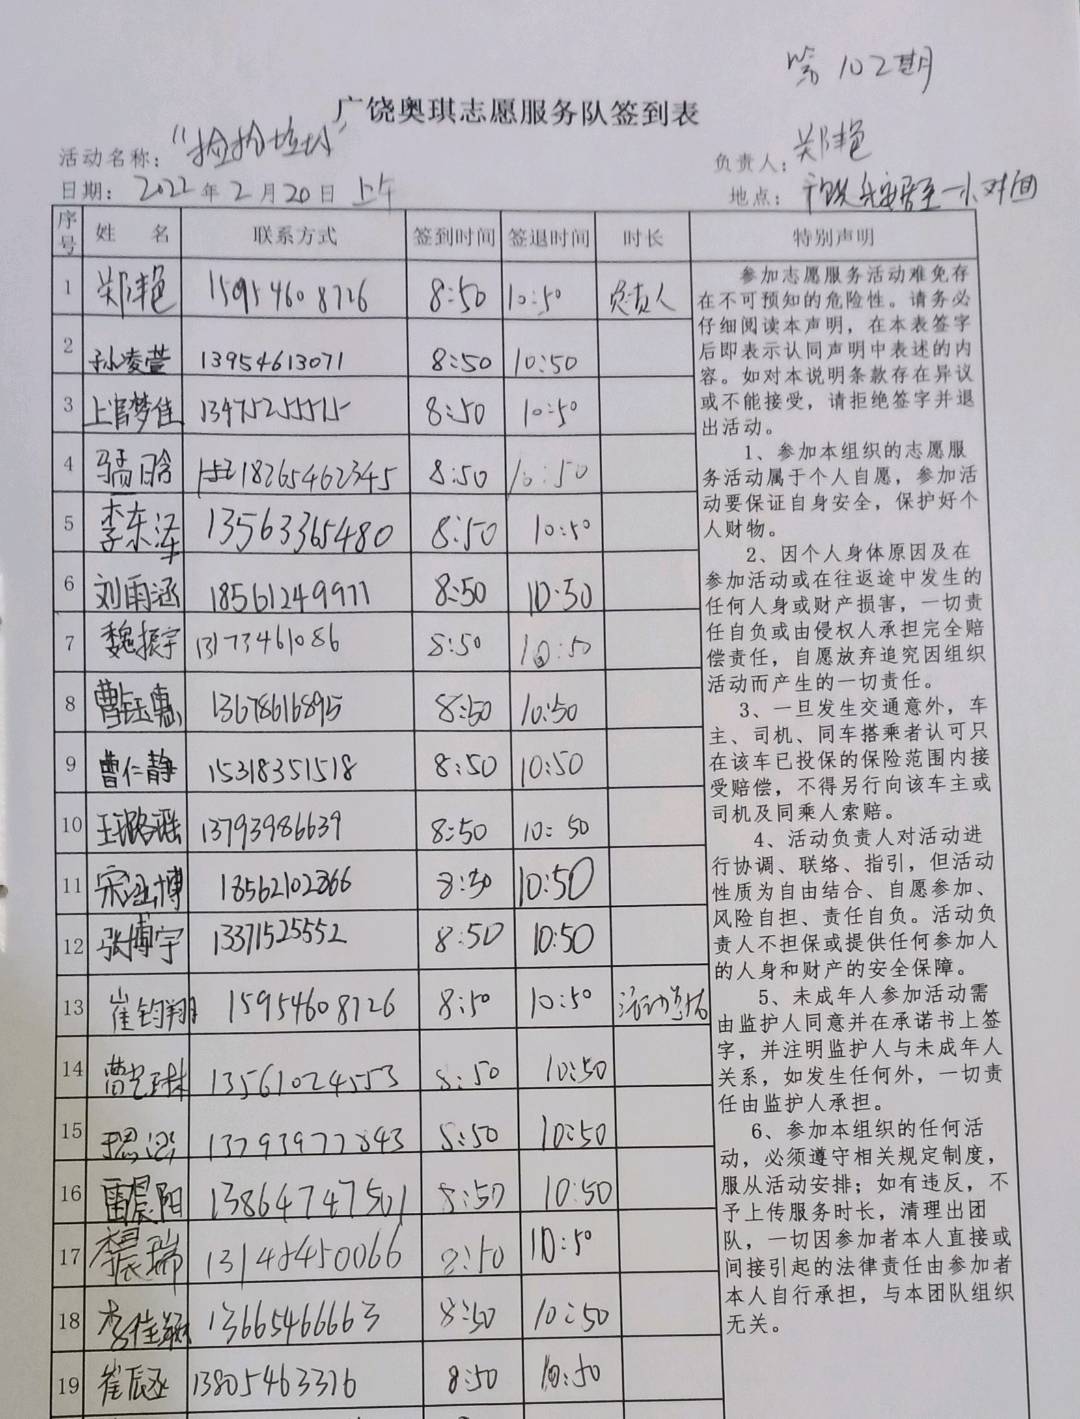 第102期
广饶奥琪志愿服务队签到表
活动名称：“捡拾垃圾”
负责人：郑艳
日期：2022年2月20日上午
地点：
序号 姓 名 联系方式 签到时间 签退时间 时长 特别声明
1 郑艳 15954608726 8:50 10:50 负责人
2 孙凌萱 13954613071 8:50 10:50
3 上官梦佳 13475255515 8:50 10:50
4 18265462345 8:50 10:50
5 李东泽 13563365480 8:50 10:50
6 刘雨涵 18561249971 8:50 10:50
7 魏振宇 13173461086 8:50 10:50
8 曹钰惠 13678616895 8:50 10:50
9 曹仁静 15318351518 8:50 10:50
10 王璐瑶 13793986639 8:50 10:50
11 18562102866 8:50 10:50
12 张博宇 13371525552 8:50 10:50
13 崔钧翔 15954608726 8:50 10:50 活动总结
14 13561024553 8:50 10:50
15 13793977843 8:50 10:50
16 雷晨阳 13864747501 8:50 10:50
17 8:50 10:50
18 李佳 13665466663 8:50 10:50
19 崔辰丞 13805463376 8:50 10:50
参加志愿服务活动难免存
在不可预知的危险性。请务必
仔细阅读本声明，在本表签字
后即表示认同声明中表述的内
容。如对本说明条款存在异议
或不能接受，请拒绝签字并退
出活动。
1、参加本组织的志愿服
务活动属于个人自愿，参加活
动要保证自身安全，保护好个
人财物。
2、因个人身体原因及在
参加活动或在往返途中发生的
任何人身或财产损害，一切责
任自负或由侵权人承担完全赔
偿责任，自愿放弃追究因组织
活动而产生的一切责任。
3、一旦发生交通意外，车
主、司机、同车搭乘者认可只
在该车已投保的保险范围内接
受赔偿，不得另行向该车主或
司机及同乘人索赔。
4、活动负责人对活动进
行协调、联络、指引，但活动
性质为自由结合、自愿参加、
风险自担、责任自负。活动负
责人不担保或提供任何参加人
的人身和财产的安全保障。
5、未成年人参加活动需
由监护人同意并在承诺书上签
字，并注明监护人与未成年人
关系，如发生任何外，一切责
任由监护人承担。
6、参加本组织的任何活
动，必须遵守相关规定制度，
服从活动安排；如有违反，不
予上传服务时长，清理出团
队，一切因参加者本人直接或
间接引起的法律责任由参加者
本人自行承担，与本团队组织
无关。